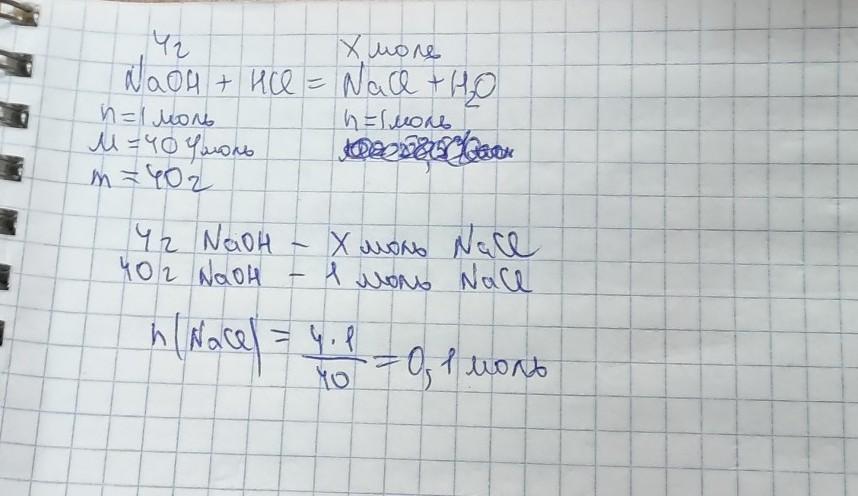 4г X моль
NaOH + HCl = NaCl + H₂O
n=1 моль n=1 моль
M=40 г/моль
m=40г
4г NaOH - X моль NaCl
40г NaOH - 1 моль NaCl
n(NaCl) = 4·1/40 = 0,1 моль